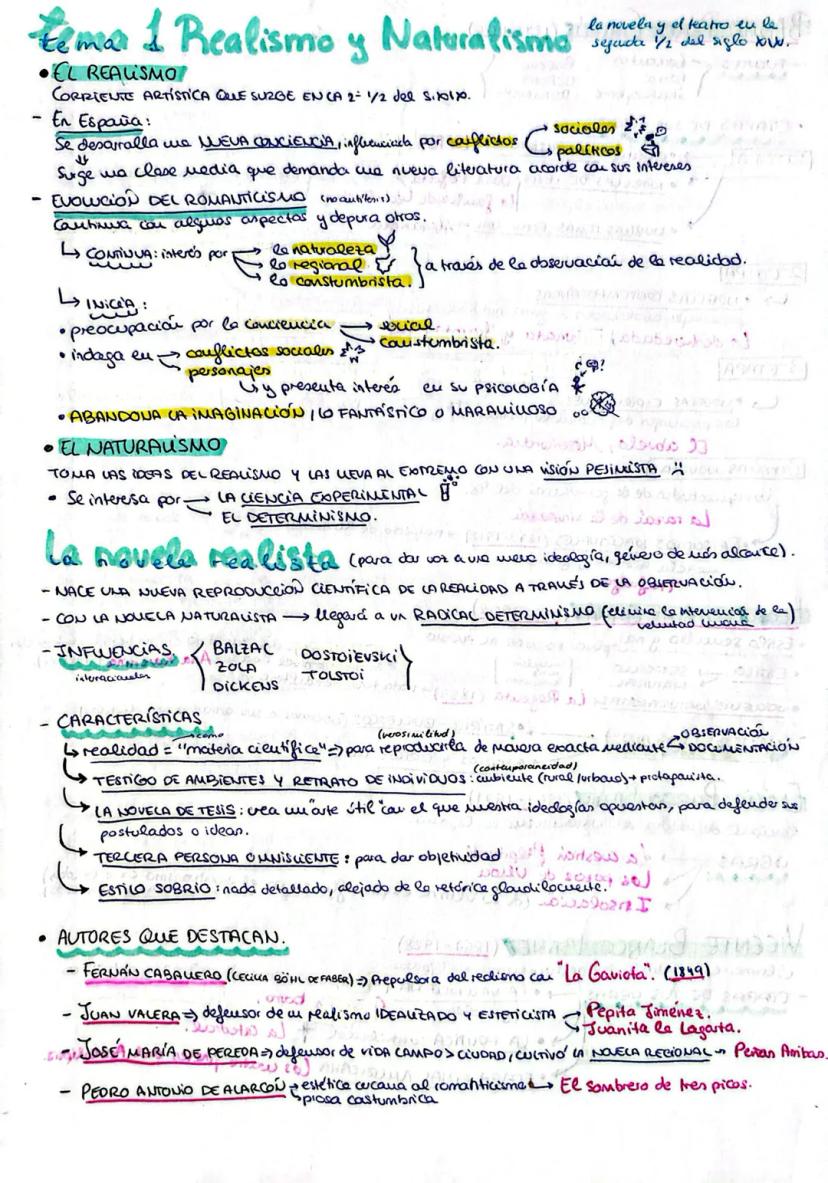 tema 1 Realismo y Naturalismo la novela y el teatro en la
segunda 1/2 del siglo XIX.
• EL REALISMO
CORRIENTE ARTÍSTICA QUE SURGE EN LA 2ª 1/2 del S.XIX.
- En España:
Se desarrolla una NUEVA CONCIENCIA, influenciada por conflictos sociales
políticos
Surge una clase media que demanda una nueva literatura acorde con sus intereses
- EVOLUCIÓN DEL ROMANTICISMO (no antítesis)
Continua con algunos aspectos y depura otros.
↳ CONTINUA: interés por → la naturaleza
→ lo regional
→ lo constumbrista. } a través de la observación de la realidad.
↳ INICIA:
• preocupación por la conciencia → social
→ constumbrista.
• indaga en → conflictos sociales
personajes
↳ y presenta interés en su PSICOLOGÍA ¿?!
• ABANDONA LA IMAGINACIÓN, LO FANTÁSTICO O MARAVILLOSO
• EL NATURALISMO
TOMA LAS IDEAS DEL REALISMO Y LAS LLEVA AL EXTREMO CON UNA VISIÓN PESIMISTA
• Se interesa por → LA CIENCIA EXPERIMENTAL
EL DETERMINISMO.
La novela realista (para dar voz a una nueva ideología, género de más alcance).
- NACE UNA NUEVA REPRODUCCIÓN CIENTÍFICA DE LA REALIDAD A TRAVÉS DE LA OBSERVACIÓN.
- CON LA NOVELA NATURALISTA → llegará a un RADICAL DETERMINISMO (elimina la intervención de la)
voluntad humana
- INFLUENCIAS BALZAC DOSTOIEVSKI
internacionales ZOLA TOLSTOI
DICKENS
- CARACTERÍSTICAS
como (verosimilitud) OBSERVACIÓN
↳ realidad = "materia científica" ⇒ para reproducirla de manera exacta mediante DOCUMENTACIÓN
(contemporaneidad)
↳ TESTIGO DE AMBIENTES Y RETRATO DE INDIVIDUOS: ambiente (rural/urbano) + protagonista.
↳ LA NOVELA DE TESIS: crea un "arte útil" con el que muestra ideologías opuestas, para defender sus
postulados o ideas.
↳ TERCERA PERSONA OMNISCIENTE: para dar objetividad
↳ ESTILO SOBRIO: nada detallado, alejado de la retórica glandilocuente.
• AUTORES QUE DESTACAN.
- FERNÁN CABALLERO (CECILIA BÖHL DE FABER) ⇒ Propulsora del realismo con "La Gaviota". (1849)
- JUAN VALERA ⇒ defensor de un realismo IDEALIZADO Y ESTETICISTA Pepita Jiménez.
Juanita la Lagarta.
- JOSÉ MARÍA DE PEREDA ⇒ defensor de VIDA CAMPO > CIUDAD, CULTIVÓ LA NOVELA REGIONAL → Peñas Arribas.
- PEDRO ANTONIO DE ALARCÓN → estética cercana al romanticismo → El sombrero de tres picos.
↳ prosa costumbrica